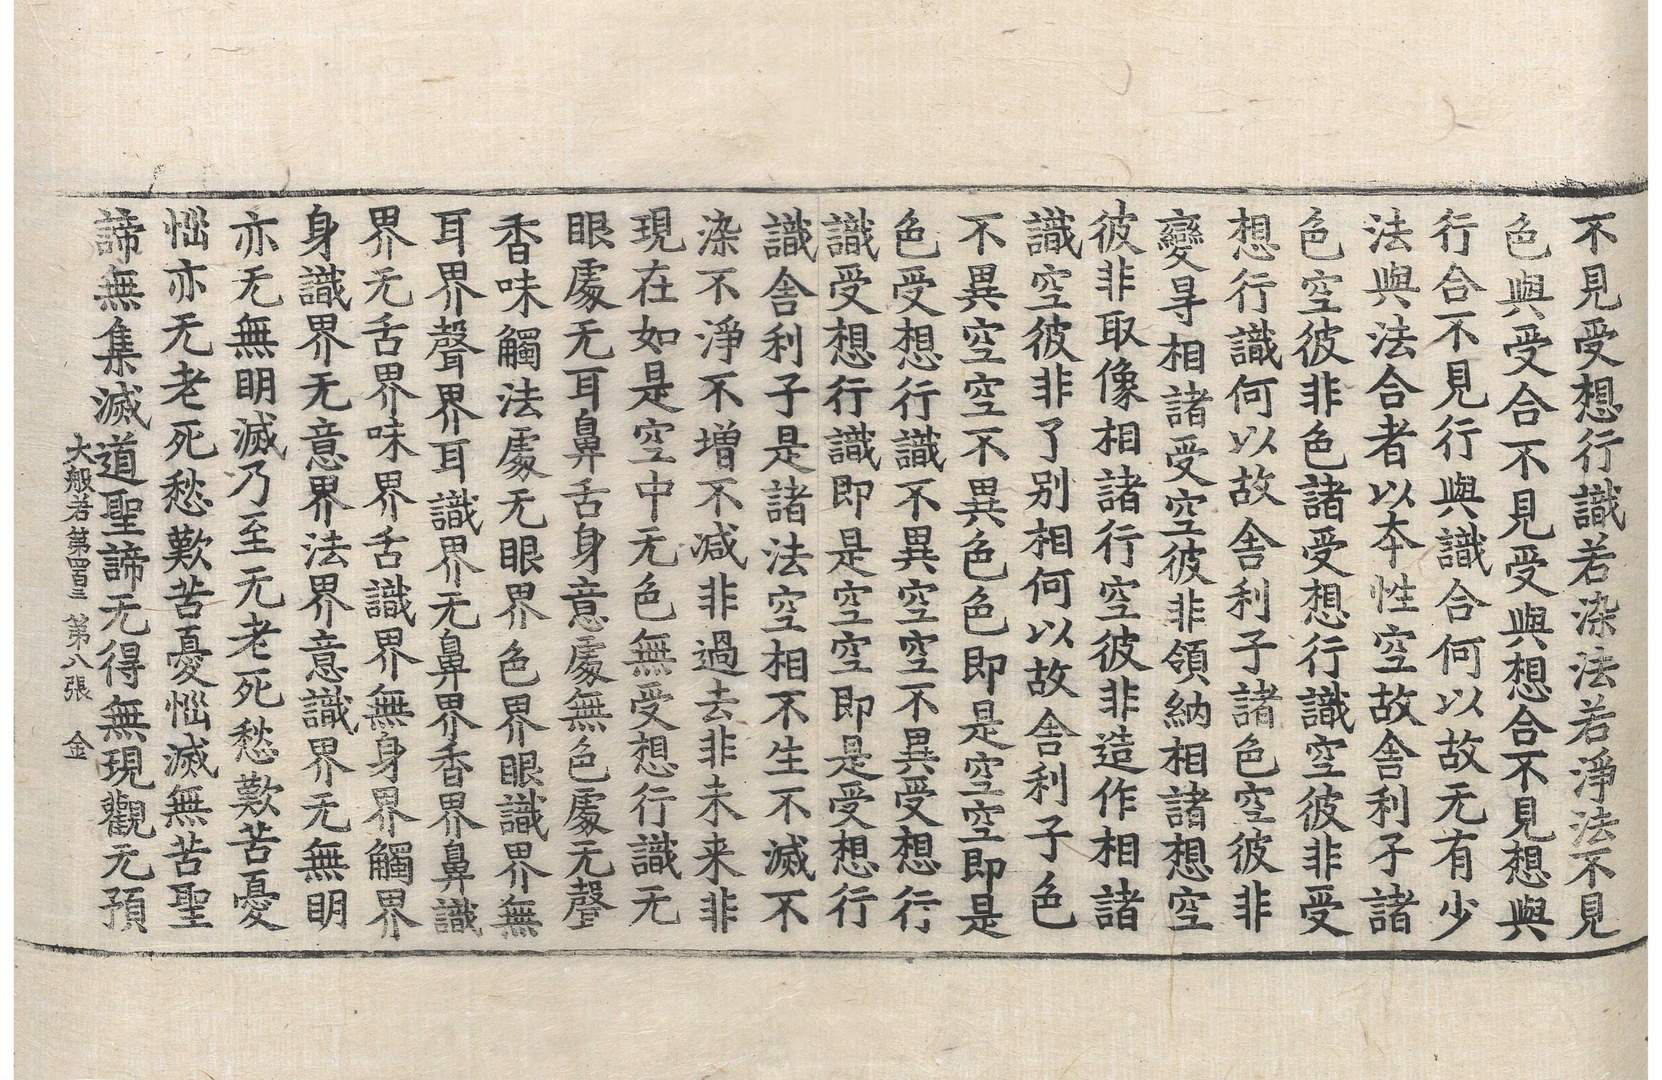 不見受想行識若染法若淨法不見
色與受合不見受與想合不見想與
行合不見行與識合何以故无有少
法與法合者以本性空故舍利子諸
色空彼非色諸受想行識空彼非受
想行識何以故舍利子諸色空彼非
變㝵相諸受空彼非領納相諸想空
彼非取像相諸行空彼非造作相諸
識空彼非了別相何以故舍利子色
不異空空不異色色即是空空即是
色受想行識不異空空不異受想行
識受想行識即是空空即是受想行
識舍利子是諸法空相不生不滅不
染不淨不增不減非過去非未来非
現在如是空中无色無受想行識无
眼處无耳鼻舌身意處無色處无聲
香味觸法處无眼界色界眼識界無
耳界聲界耳識界无鼻界香界鼻識
界无舌界味界舌識界無身界觸界
身識界无意界法界意識界无無明
亦无無明滅乃至无老死愁歎苦憂
惱亦无老死愁歎苦憂惱滅無苦聖
諦無集滅道聖諦无得無現觀无預
大般若第四百三 第八張 金